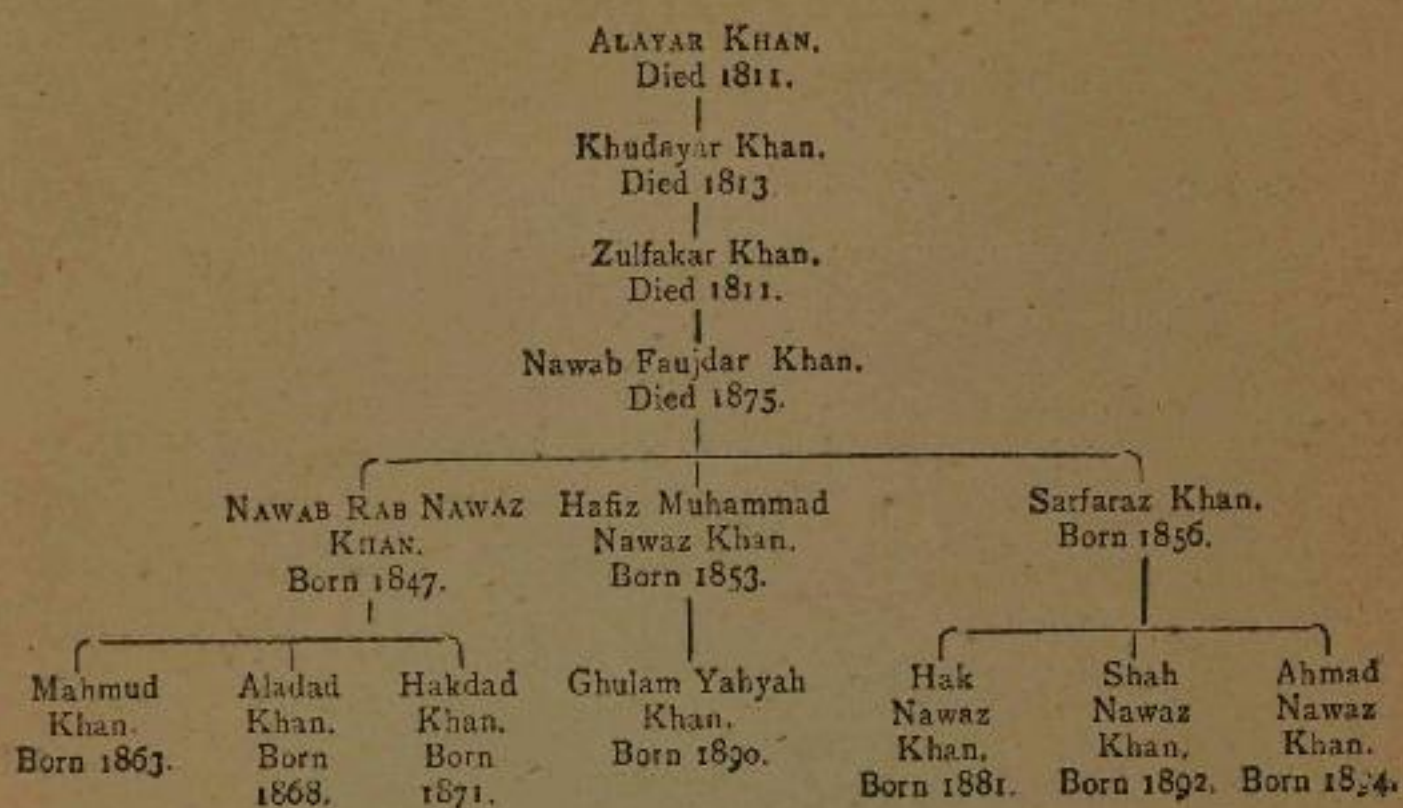 ALAYAR KHAN.
Died 1811.
Khudayar Khan.
Died 1813
Zulfakar Khan.
Died 1811.
Nawab Faujdar Khan.
Died 1875.
NAWAB RAB NAWAZ
KHAN.
Born 1847.
Hafiz Muhammad
Nawaz Khan.
Born 1853.
Sarfaraz Khan.
Born 1856.
Mahmud
Khan.
Born 1863.
Aladad
Khan.
Born
1868.
Hakdad
Khan.
Born
1871.
Ghulam Yahyah
Khan.
Born 1890.
Hak
Nawaz
Khan.
Born 1881.
Shah
Nawaz
Khan.
Born 1892.
Ahmad
Nawaz
Khan.
Born